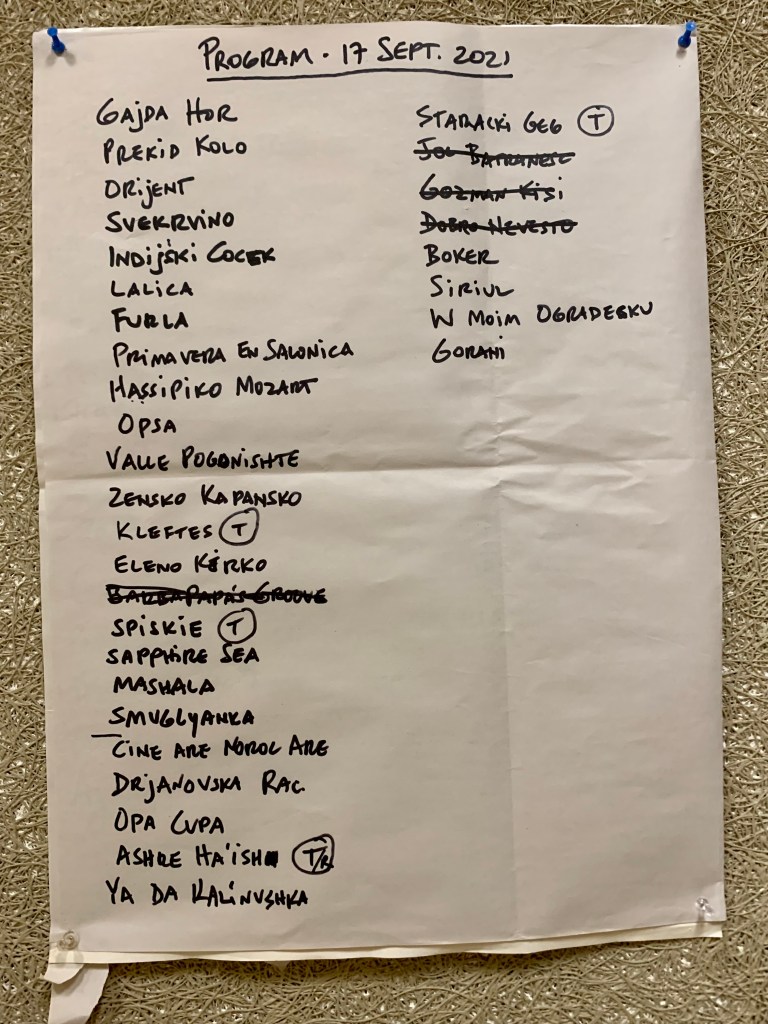 PROGRAM · 17 SEPT. 2021
GAJDA HOR
PREKID KOLO
ORIJENT
SVEKRVINO
INDIJSKI COCEK
LALICA
FURLA
PRIMAVERA EN SALONICA
HASSIPIKO MOZART
OPSA
VALLE POGONISHTE
ZENSKO KAPANSKO
KLEFTES T
ELENO KERKO
BARBAPAPA'S GROOVE
SPISKIE T
SAPPHIRE SEA
MASHALA
SMUGLYANKA
CINE ARE NOROC ARE
DRJANOVSKA RAC.
OPA CUPA
ASHRE HA'ISH T/R
YA DA KALINUSHKA
STARACKI GEG T
JOC BATRANESC
GOZMAN KISI
DOBRO NEVESTO
BOKER
SIRIUL
W MOIM OGRADESKU
GORANI